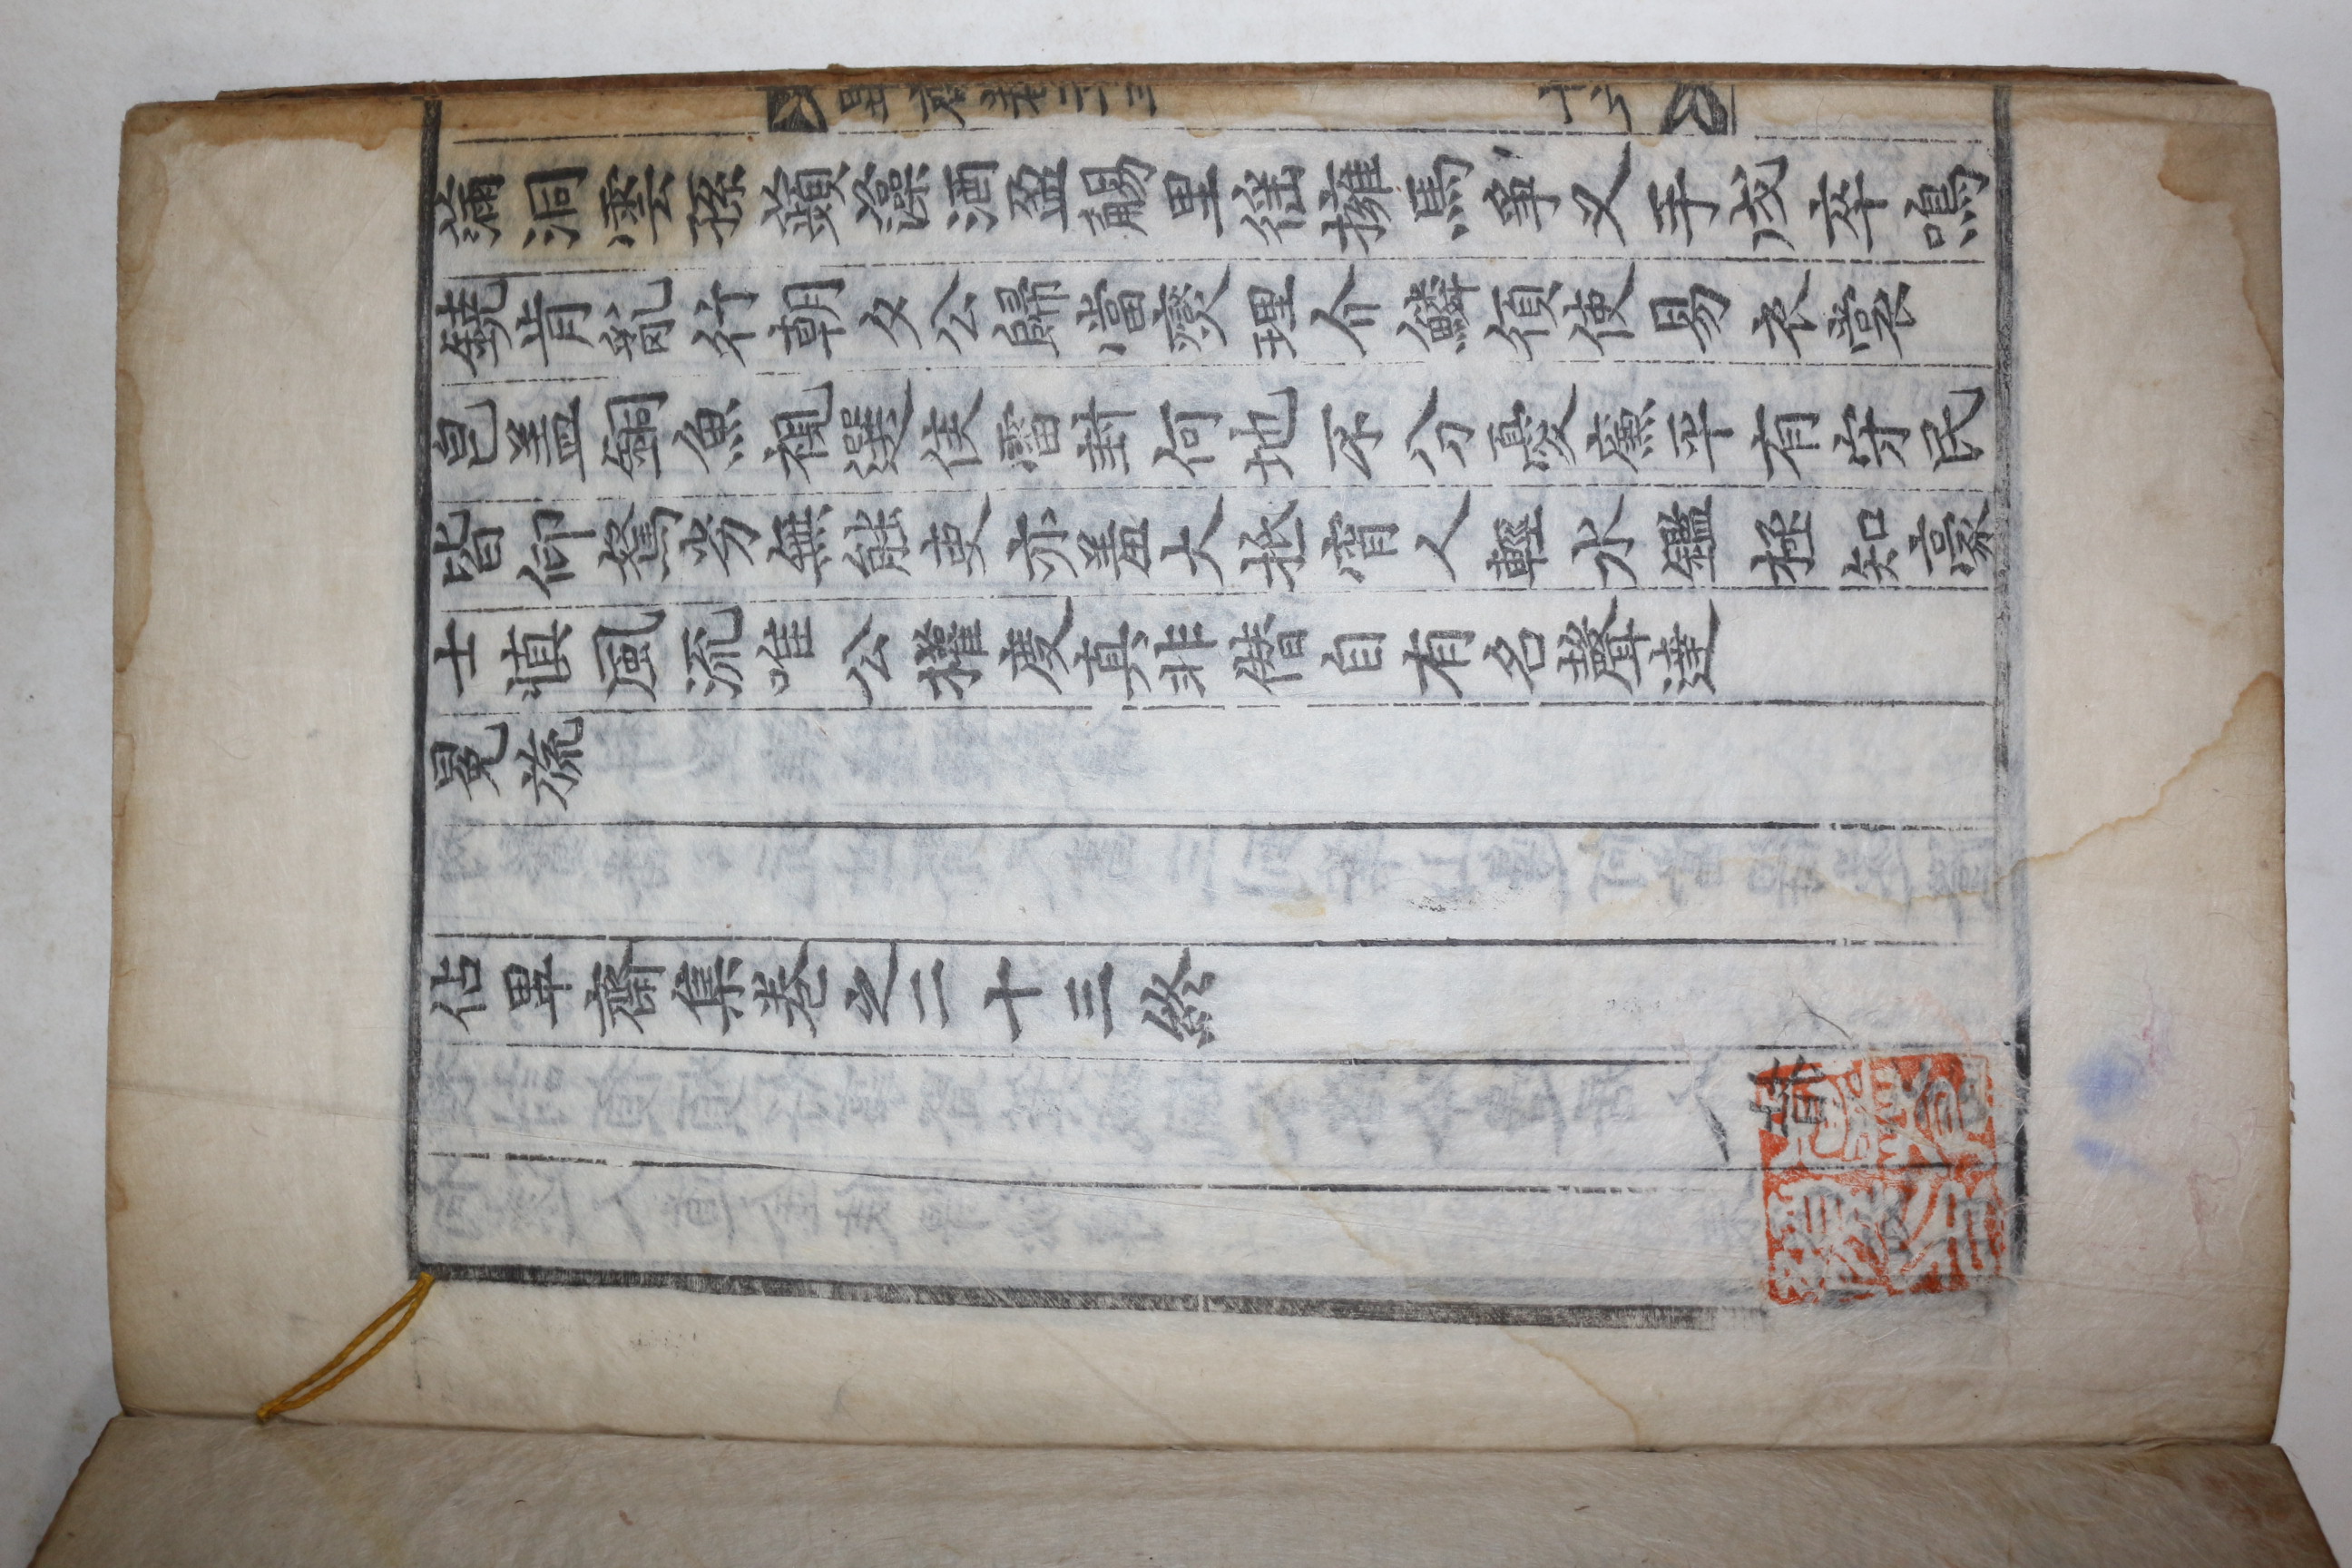 滿洞雲孫蘋藻酒盈觴里徭擁馬爭叉手戍卒鳴
鐃肯亂行朝夕公歸當燮理介鱗須使易衣裳
皂盖銅魚視選侯雷封何地不分憂廉平有守民
皆仰駑劣無能吏亦羞大抵宵人輕水鑑極知豪
士愼風流唯公權度真非僭自有名聲達
冕旒
佔畢齋集卷之二十三終